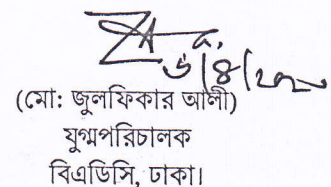 (মো: জুলফিকার আলী)
যুগ্মপরিচালক
বিএডিসি, ঢাকা।